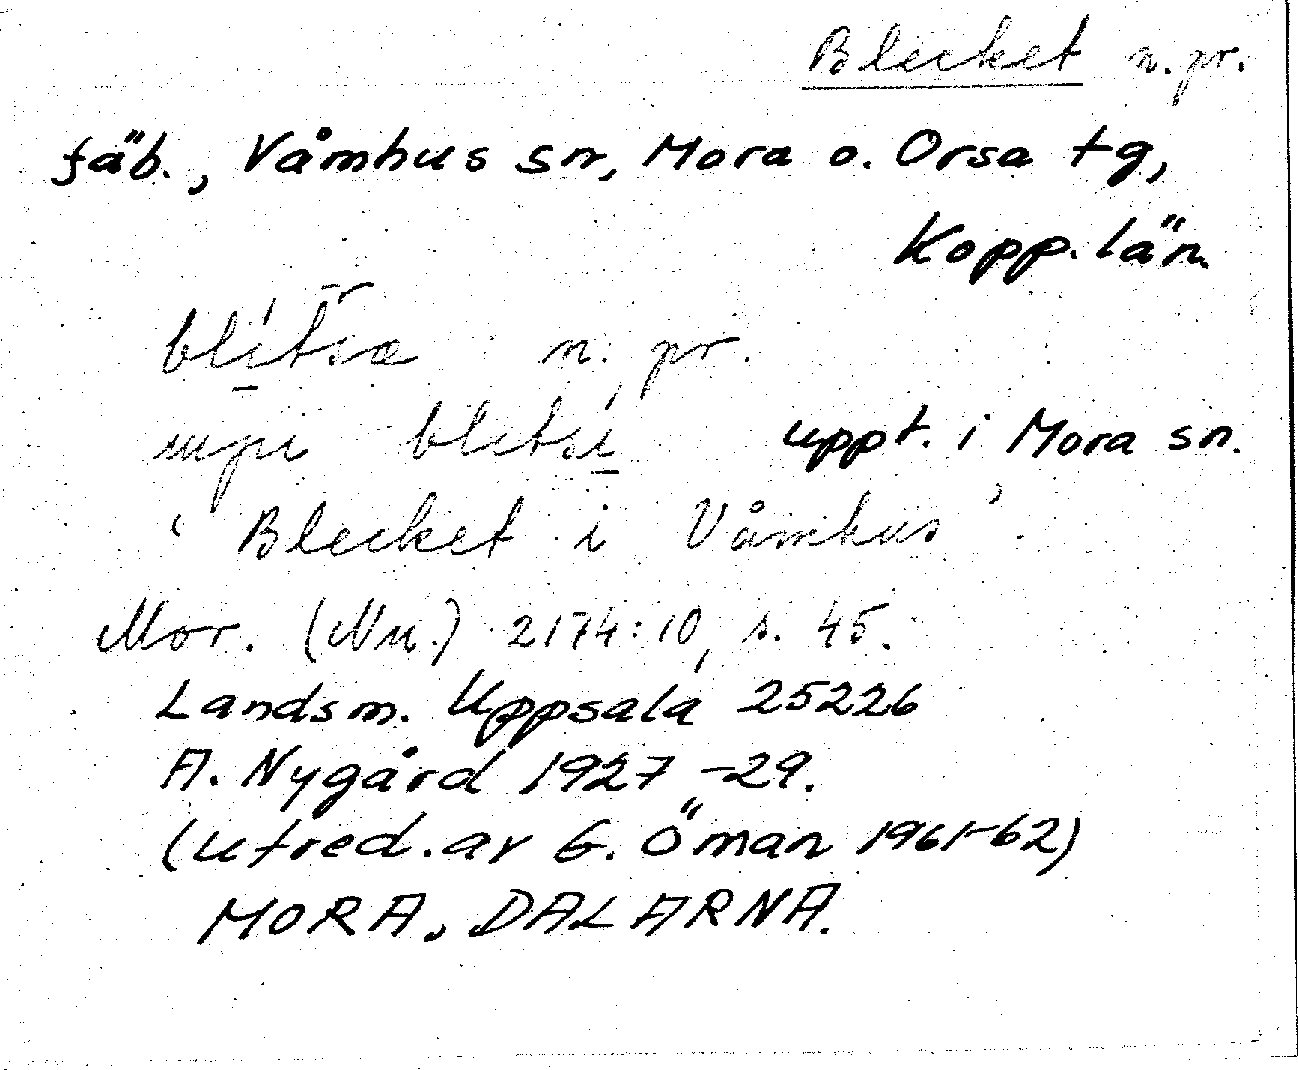 Blecket n. pr.
fäb., Våmhus sn, Mora o. Orsa tg,
Kopp. län.
n. pr.
uppt. i Mora sn.
' Blecket i Våmhus '.
Mor. (Nu.) 2174:10, s. 45.
Landsm. Uppsala 25226
A. Nygård 1927-29.
(utred. av G. Öman 1961-62)
MORA, DALARNA.